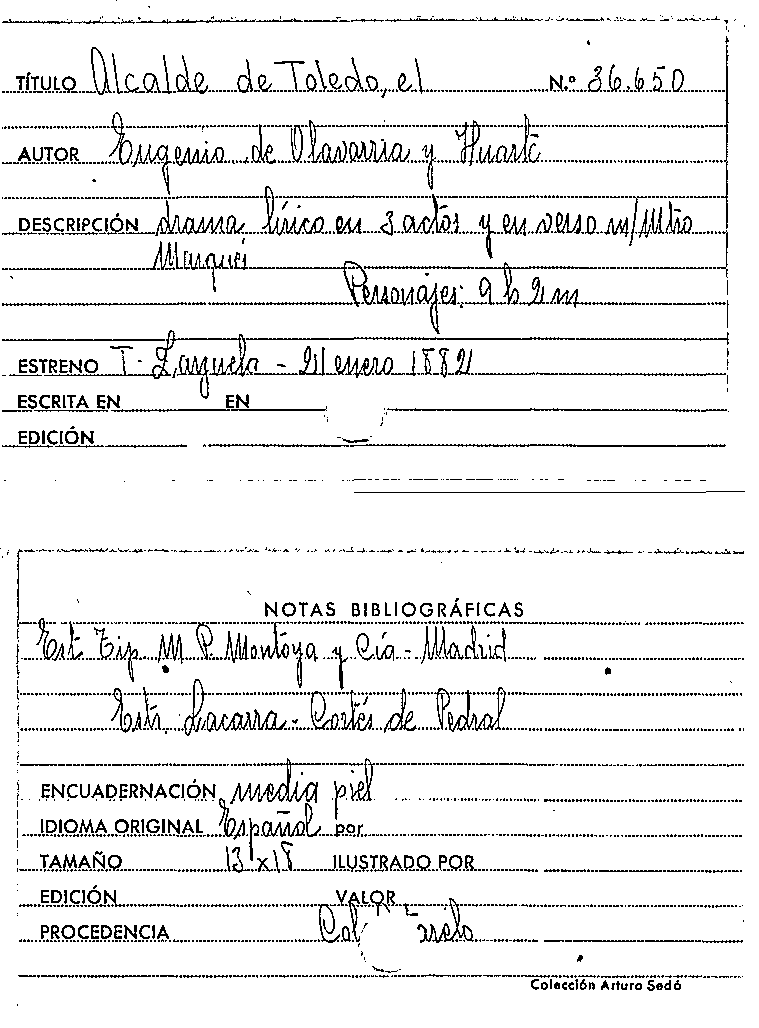 TÍTULO Alcalde de Toledo, el N.º 36.650
AUTOR Eugenio de Olavarria y Huarte
DESCRIPCIÓN drama lírico en 3 actos y en verso m/ Mtro
Marqués
Personajes: 9 h 2 m
ESTRENO T. Zarzuela - 21 enero 1882
ESCRITA EN EN
EDICIÓN
NOTAS BIBLIOGRÁFICAS
Est. Tip. M P. Montoya y Cía - Madrid
Estr. Lacarra - Cortés de Pedral
ENCUADERNACIÓN media piel
IDIOMA ORIGINAL Español por
TAMAÑO 13 x 18 ILUSTRADO POR
EDICIÓN VALOR
PROCEDENCIA Col
Colección Arturo Sedó